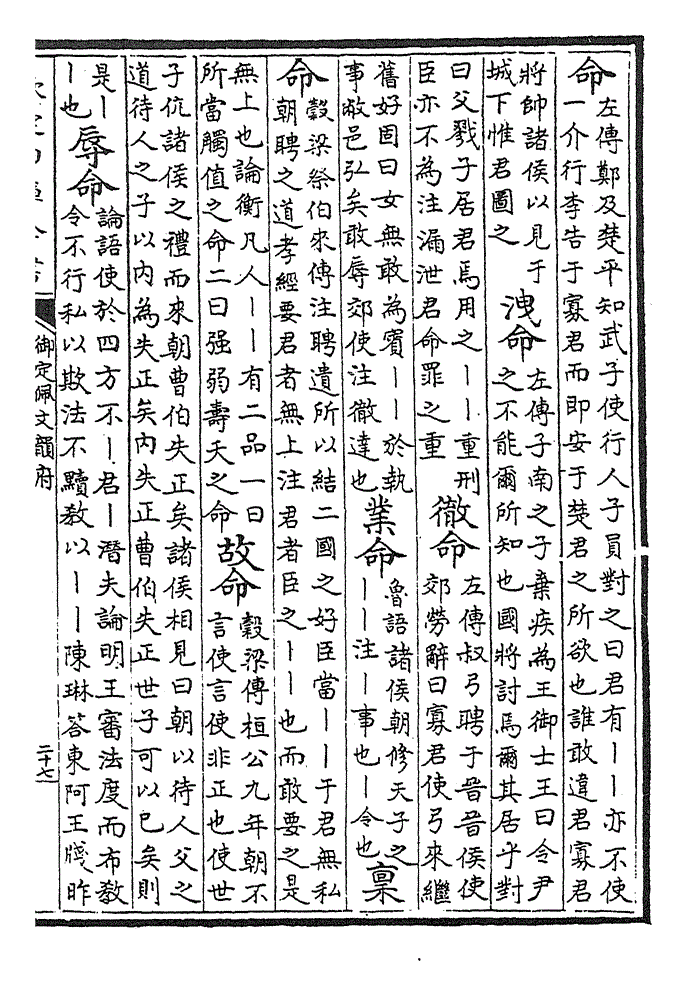 命左傳鄭及楚平知武子使行人子員對之曰君有丨丨亦不使
一介行李告于寡君而即安于楚君之所欲也誰敢違君寡君
將帥諸侯以見于
城下惟君圖之
洩命左傳子南之子棄疾為王御士王曰令尹
之不能爾所知也國將討焉爾其居乎對
曰父戮子居君焉用之丨丨重刑
臣亦不為注漏泄君命罪之重
徹命左傳叔弓聘于晉晉侯使
郊勞辭曰寡君使弓來繼
舊好固曰女無敢為賓丨丨於執
事敝邑弘矣敢辱郊使注徹達也
業命魯語諸侯朝修天子之
丨丨注丨事也丨令也
稟
命穀梁祭伯來傳注聘遺所以結二國之好臣當丨丨于君無私
朝聘之道孝經要君者無上注君者臣之丨丨也而敢要之是
無上也論衡凡人丨丨有二品一曰
所當觸值之命二曰强弱壽夭之命
故命穀梁傳桓公九年朝不
言使言使非正也使世
子伉諸侯之禮而來朝曹伯失正矣諸侯相見曰朝以待人父之
道待人之子以內為失正矣內失正曹伯失正世子可以已矣則
是丨
丨也
辱命論語使於四方不丨君丨潛夫論明王審法度而布教
令不行私以欺法不黷教以丨丨陳琳答東阿王牋昨
御定佩文韻府
二十七